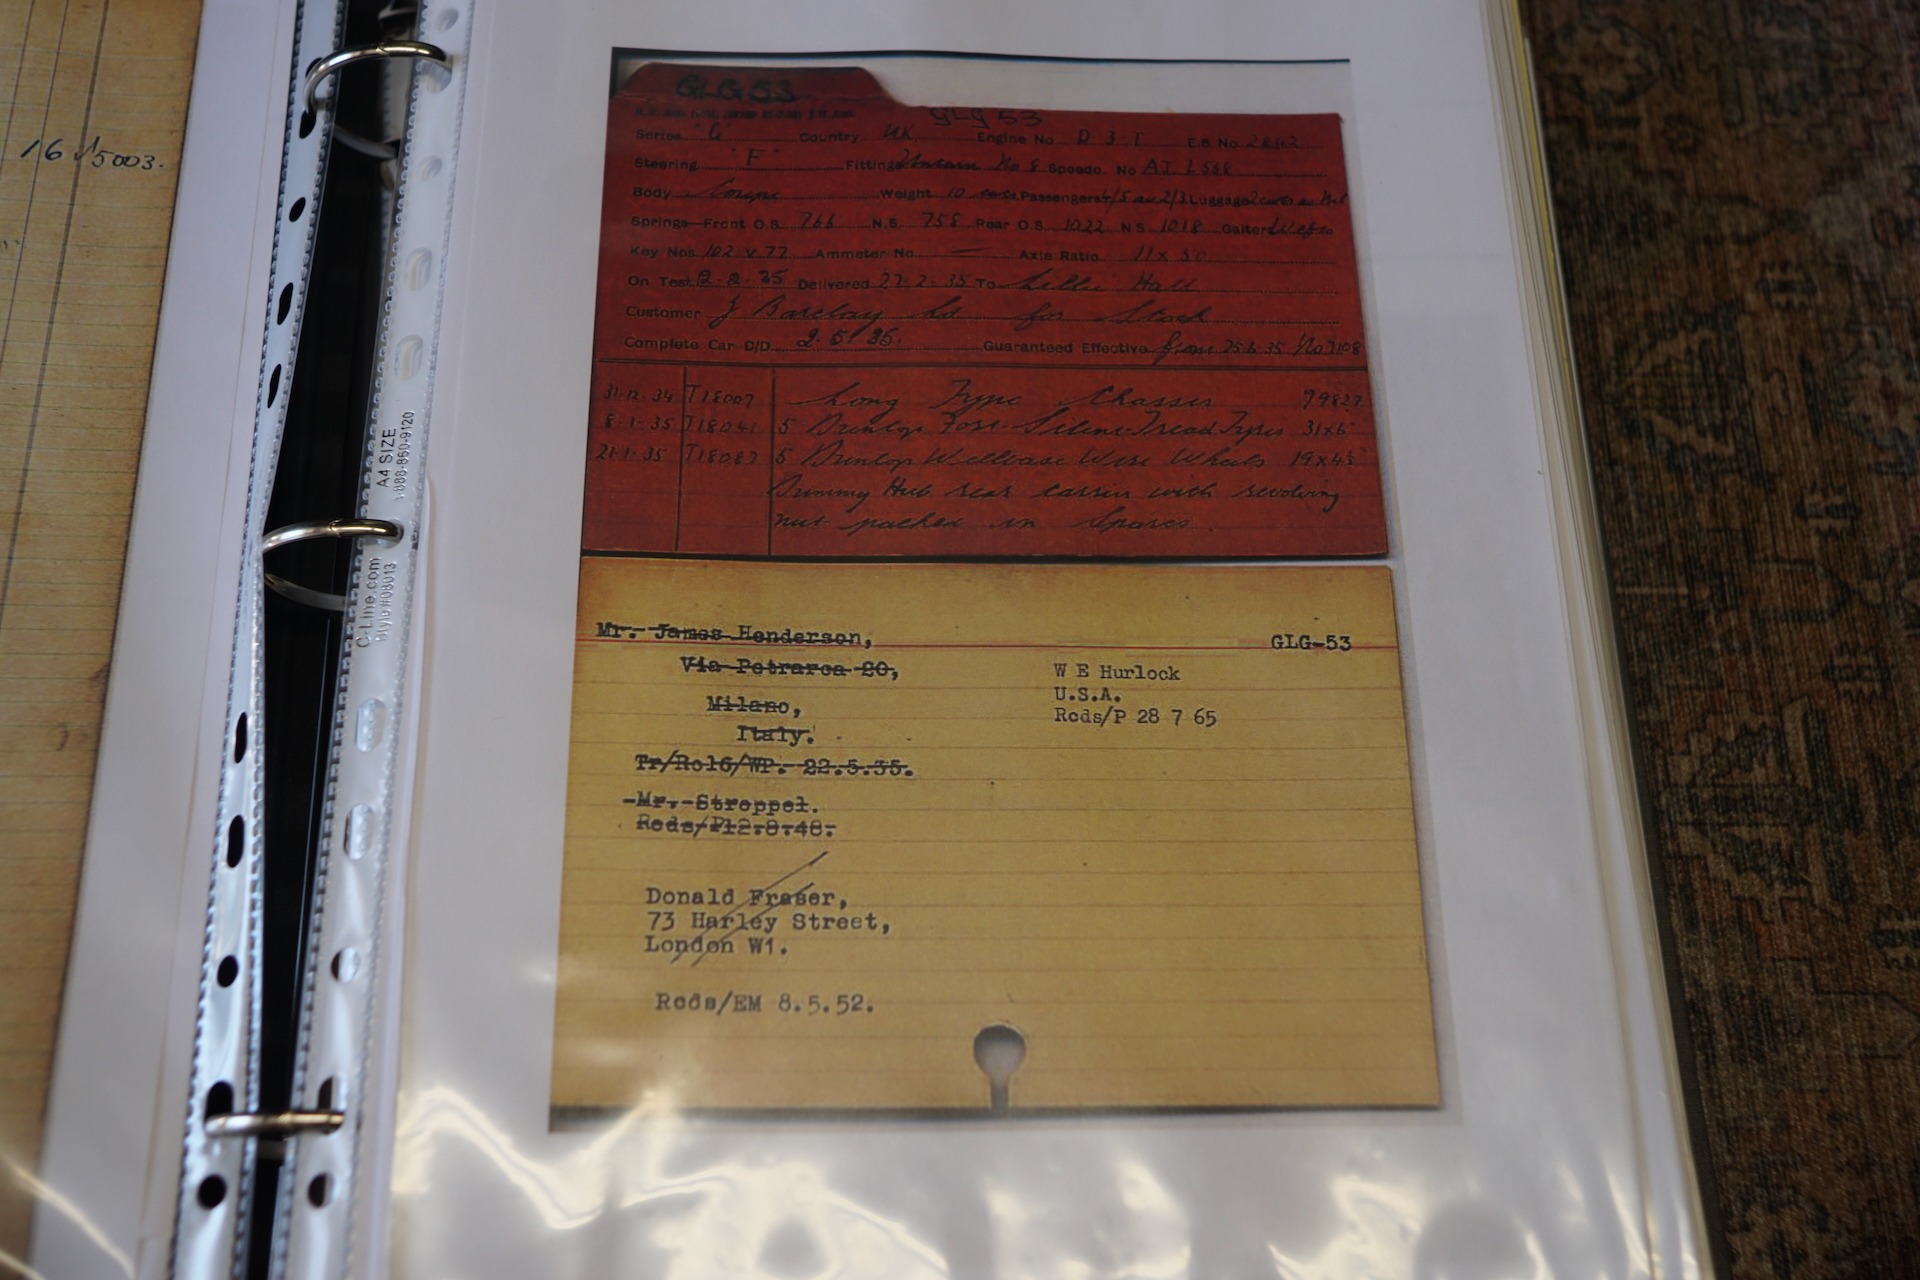 16 /5003.
A4 SIZE
1-888-860-9120
C-Line.com
Style #08013
GLG 53
GLG 53
Series "G" Country UK. Engine No D-3-E E.B. No.
Steering "F" Fittings No 8 Speedo. No
Body Coupe Weight 10 cwts Passengers 4/5 Luggage
Springs—Front O.S. 766 N.S. 758 Rear O.S. 1022 N.S. 1018 Gaiters Wefco
Key Nos. 102 v 77 Ammeter No. Axle Ratio 11 x 50
On Test 2-2-35 Delivered 27-2-35 To Lillie Hall
Customer J Barclay Ld for Stock
Complete Car D/D 2.5.35. Guaranteed Effective from 25.6.35 No 7108
31-12-34 T18007 Long Type Chassis
8-1-35 T18041 5 Dunlop Fort Silent Tread Tyres 31x6
21-1-35 T18087 5 Dunlop Wellbase Wire Wheels 19x4½
Dummy Hub rear carrier with revolving
nut packed in Spares.
Mr. James Henderson, GLG-53
Via Petrarca 20,
Milano,
Italy.
Tr/Rol6/WP. 22.5.35.
Mr. Stroppel.
Rcds/P12.8.48.
Donald Fraser,
73 Harley Street,
London W1.
Rcds/EM 8.5.52.
W E Hurlock
U.S.A.
Rcds/P 28 7 65